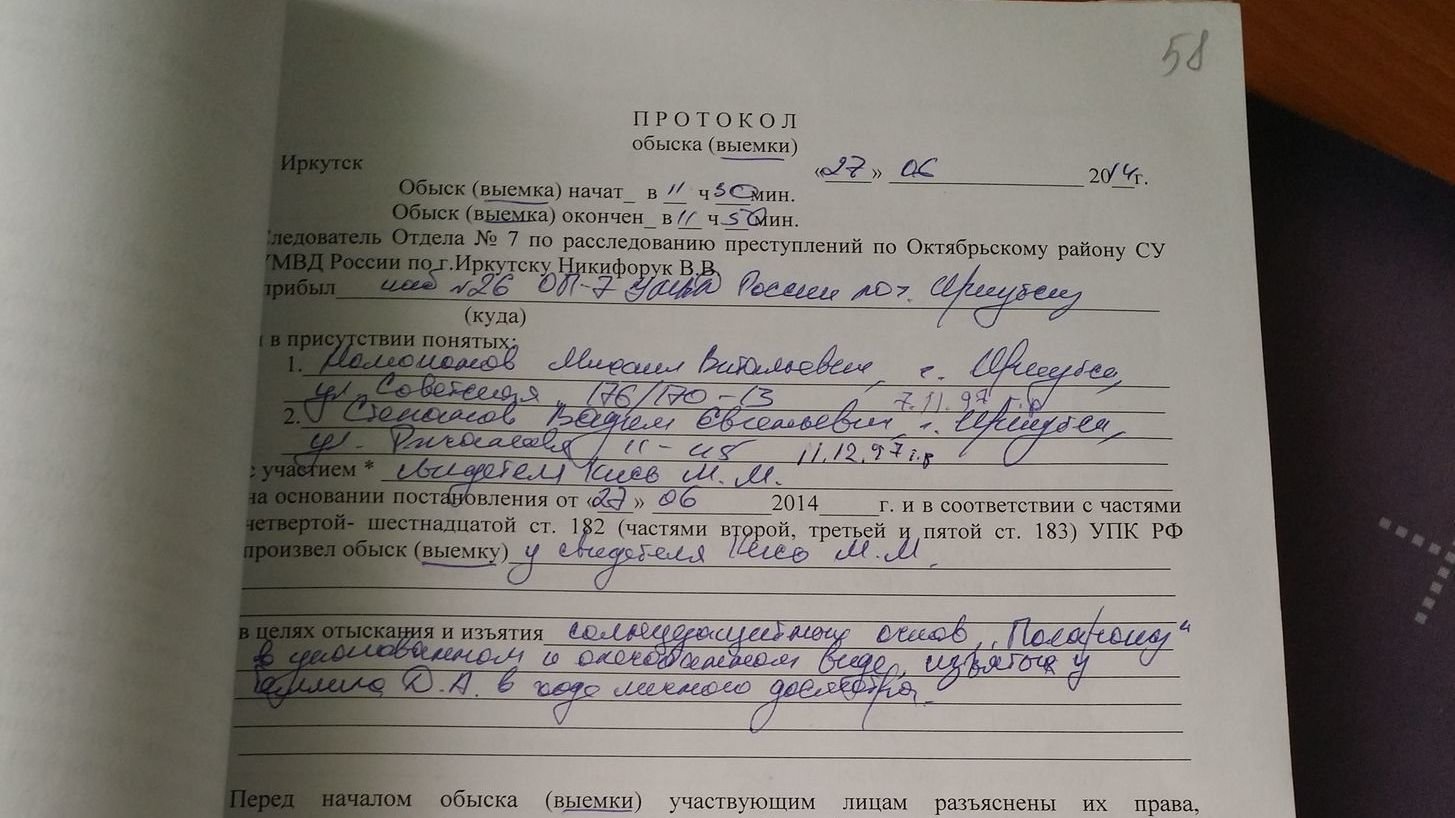 58
ПРОТОКОЛ
обыска (выемки)
Иркутск «27» 06 2014г.
Обыск (выемка) начат_ в 11 ч 30 мин.
Обыск (выемка) окончен_ в 11 ч 50 мин.
ледователь Отдела № 7 по расследованию преступлений по Октябрьскому району СУ
УМВД России по г.Иркутску Никифорук В.В.
прибыл каб №26 ОП-7 УМВД России по г. Иркутску
(куда)
в присутствии понятых:
1. Михаил Витальевич, г. Иркутск,
ул. Советская, 176/170-13 7.11.97 г.р
2. Степанов Вадим Евгеньевич, г. Иркутск,
ул. 11.12.97 г.р
с участием * свидетеля Кись М.М.
на основании постановления от «27» 06 2014 г. и в соответствии с частями
четвертой- шестнадцатой ст. 182 (частями второй, третьей и пятой ст. 183) УПК РФ
произвел обыск (выемку) у свидетеля Кись М.М.
в целях отыскания и изъятия солнцезащитных очков
в упакованном и опечатанном виде, изъятых у
Д.А. в ходе личного досмотра.
Перед началом обыска (выемки) участвующим лицам разъяснены их права,